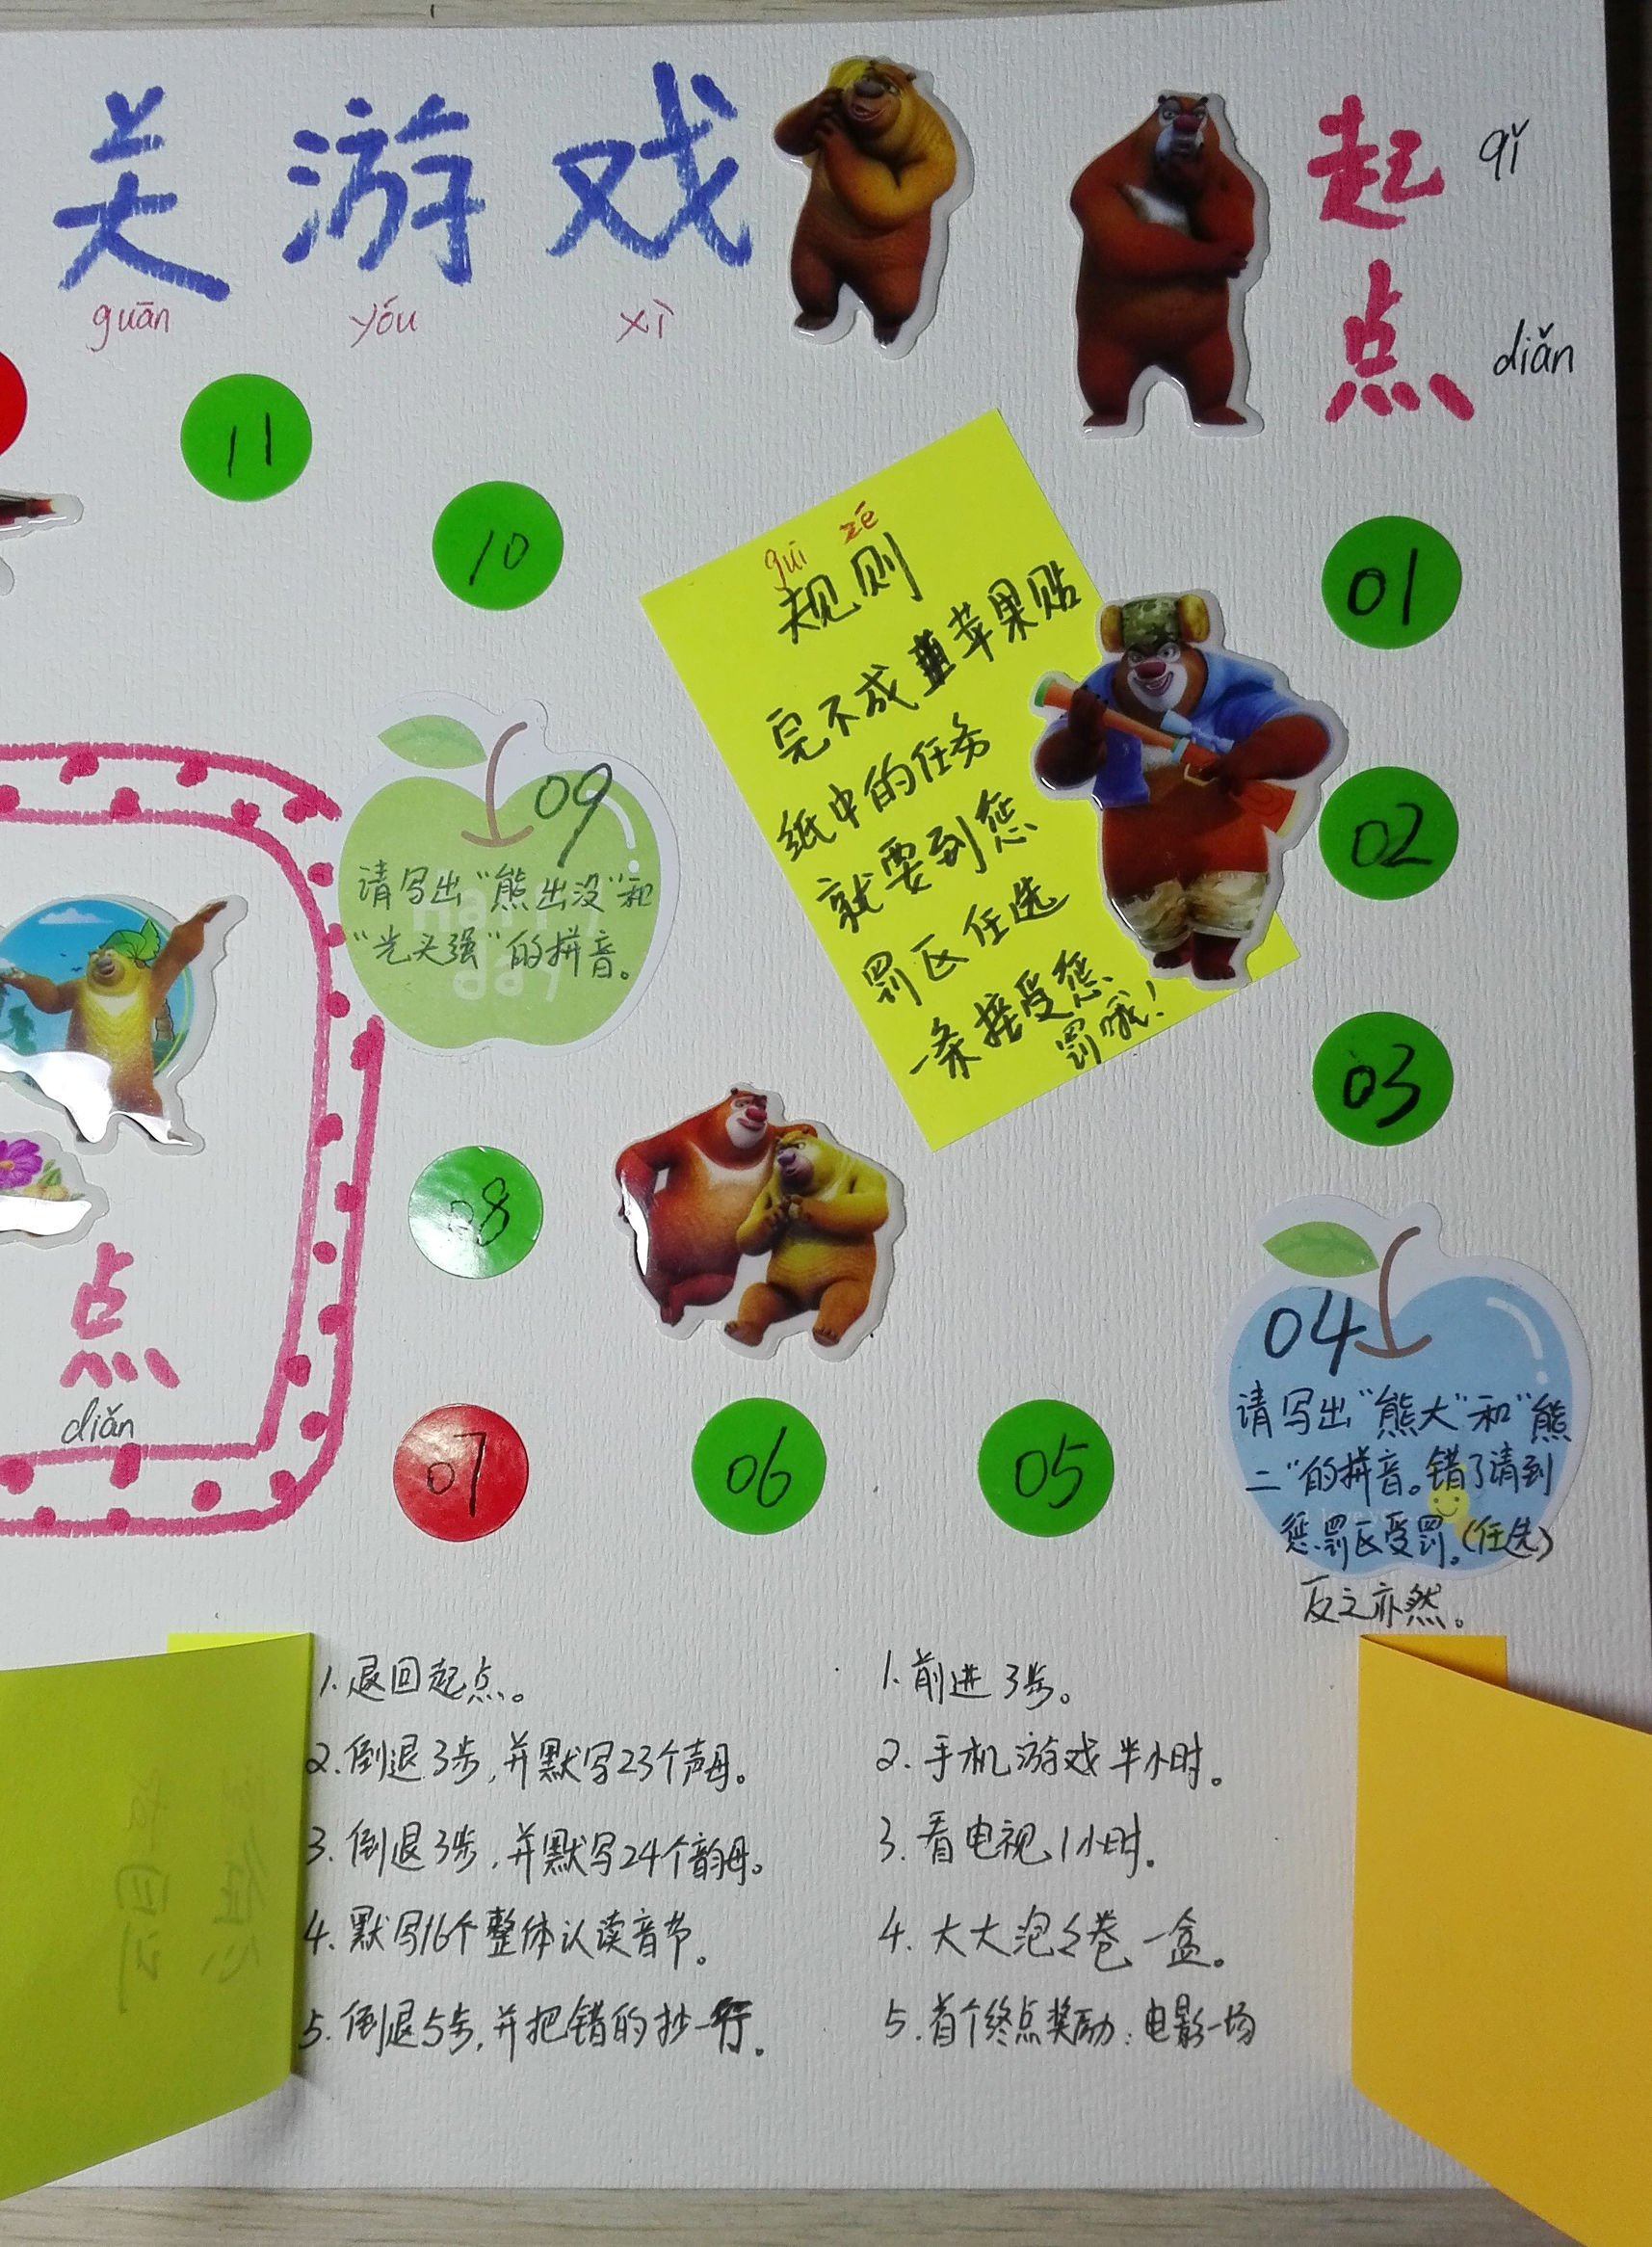 关游戏
guān yóu xì
起 qǐ
点 diǎn
11
10
01
02
03
guī zé
规则
完不成苹果贴
纸中的任务
就要到惩
罚区任选
一条接受惩
罚哦!
09
请写出“熊出没”和
“光头强”的拼音。
08
点
diǎn
07
06
05
04
请写出“熊大”和“熊
二”的拼音。错了请到
惩罚区受罚。(任选)
反之亦然。
1.退回起点。
2.倒退3步,并默写23个声母。
3.倒退3步,并默写24个韵母。
4.默写16个整体认读音节。
5.倒退5步,并把错的抄一行。
1.前进3步。
2.手机游戏半小时。
3.看电视1小时。
4.大大泡泡卷一盒。
5.首个终点奖励:电影一场